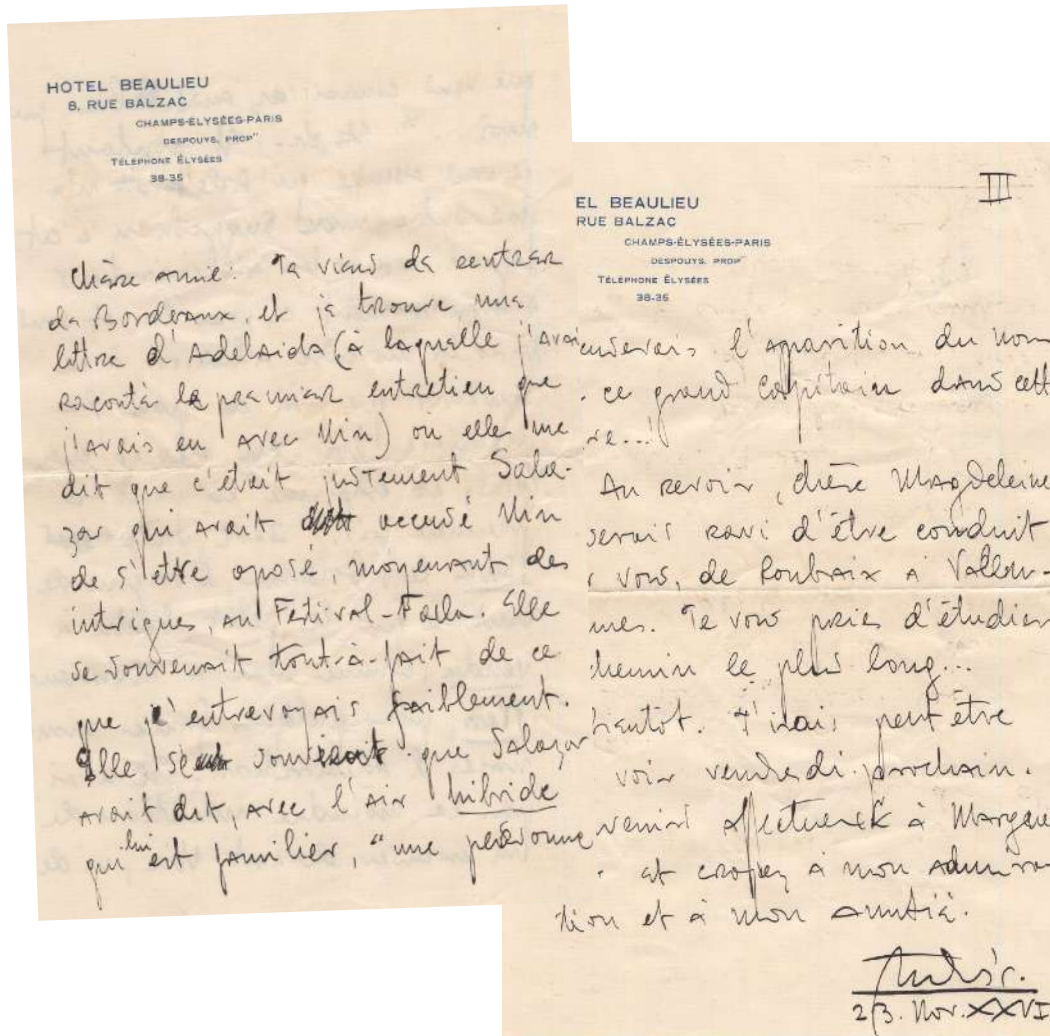 HOTEL BEAULIEU
8, RUE BALZAC
CHAMPS-ÉLYSÉES-PARIS
DESPOUYS, PROP^re
TÉLÉPHONE ÉLYSÉES
38-35
chère amie: Je viens de rentrer
de Bordeaux, et je trouve une
lettre d'Adelaida (à laquelle j'avai
raconté le premier entretien que
j'avais eu avec Nin) où elle me
dit que c'était justement Sala-
zar qui avait accusé Nin
de s'être oposé, moyenant des
intrigues, au Festival-Falla. Elle
se souvenait tout-à-fait de ce
que j'entrevoyais faiblement.
Elle se que Salazar
avait dit, avec l'air hibride
qui lui est familier, "une personne
III
EL BEAULIEU
RUE BALZAC
CHAMPS-ÉLYSÉES-PARIS
DESPOUYS, PROP^re
TÉLÉPHONE ÉLYSÉES
38-35
l'apparition du nom
ce grand capitain dans cett
re...!
Au revoir, chère Magdeleine
serais ravi d'être conduit
r vous, de Roubaix a Vallen-
nes. Je vous pries d'étudier
hemin le plus long...
bientot. J'irais peut être
voir vendredi prochain.
à Margue
et croyez à mon admira-
tion et à mon amitié.
2/3. Nov. XXVI